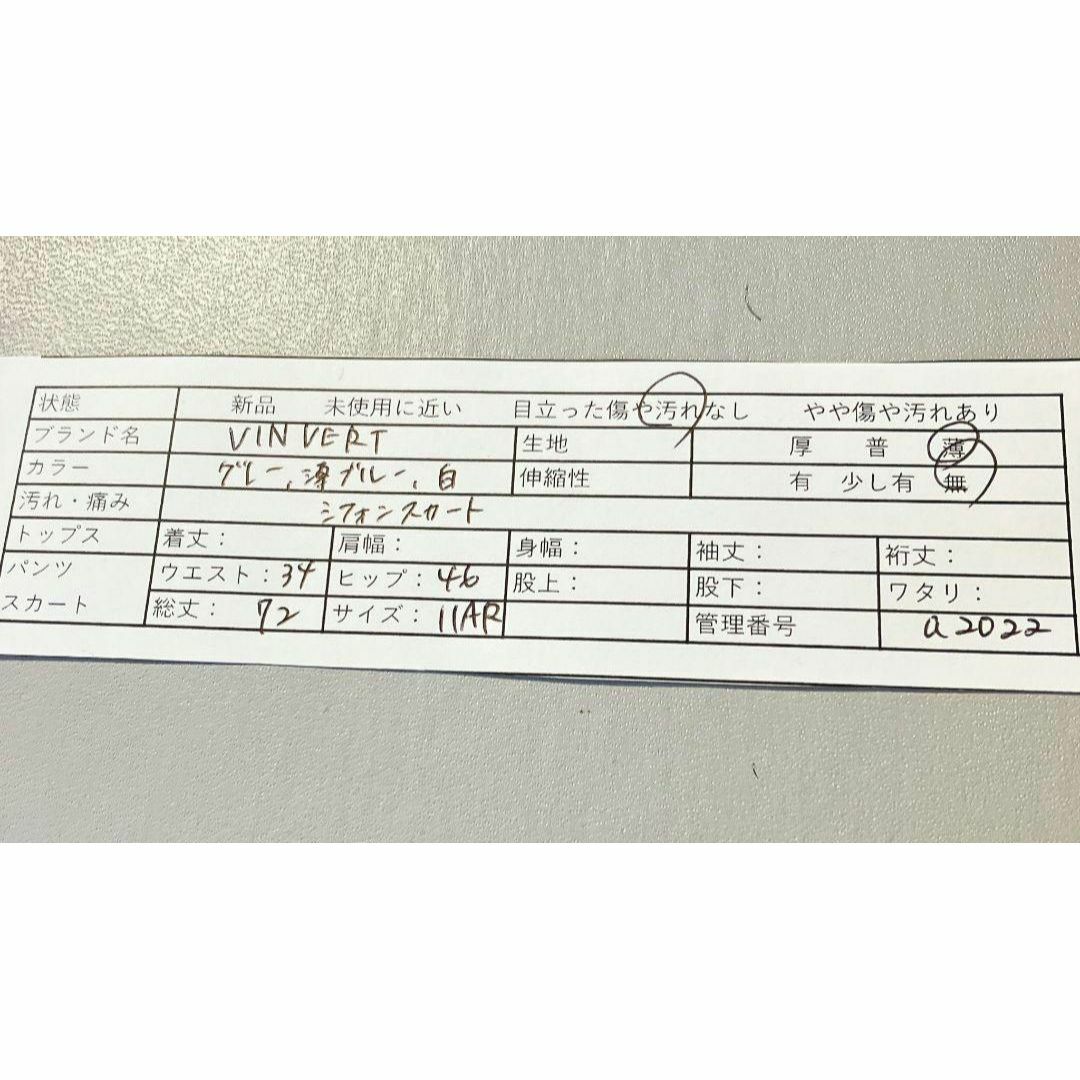 状態 新品 未使用に近い 目立った傷や汚れなし やや傷や汚れあり
ブランド名 VINVERT 生地 厚 普 薄
カラー グレー、薄ブルー、白 伸縮性 有 少し有 無
汚れ・痛み シフォンスカート
トップス 着丈： 肩幅： 身幅： 袖丈： 裄丈：
パンツ ウエスト：34 ヒップ：46 股上： 股下： ワタリ：
スカート 総丈：72 サイズ：11AR 管理番号 a2022